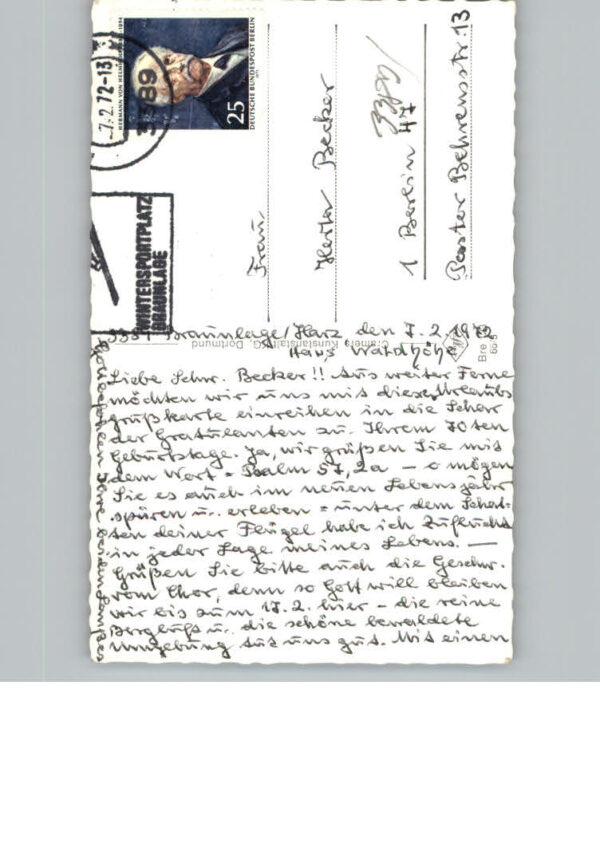 7.2.72-13
3389
HERMANN VON HELMHOLTZ
25
DEUTSCHE BUNDESPOST BERLIN
WINTERSPORTPLATZ
BRAUNLAGE
Frau
Herta Becker
1 Berlin 47
Pastor Behrensstr. 13
Cramers Kunstanstalt KG, Dortmund
Bre
Braunlage/Harz den 7.2.1972
Haus Waldhöhe
Liebe Schw. Becker!! Aus weiter Ferne
möchten wir uns mit dieser Urlaubs
grußkarte einreihen in die Schar
der Gratulanten zu Ihrem 70ten
Geburtstage. Ja, wir grüßen Sie mit
dem Wort - Psalm 57,2a - o mögen
Sie es auch im neuen Lebensjahr
spüren u. erleben = unter dem Schat-
ten deiner Flügel habe ich Zuflucht
in jeder Lage meines Lebens. —
Grüßen Sie bitte auch die Geschw.
vom Chor, denn so Gott will bleiben
wir bis zum 17.2. hier - die reine
Bergluft u. die schöne bewaldete
Umgebung tut uns gut. Mit einem